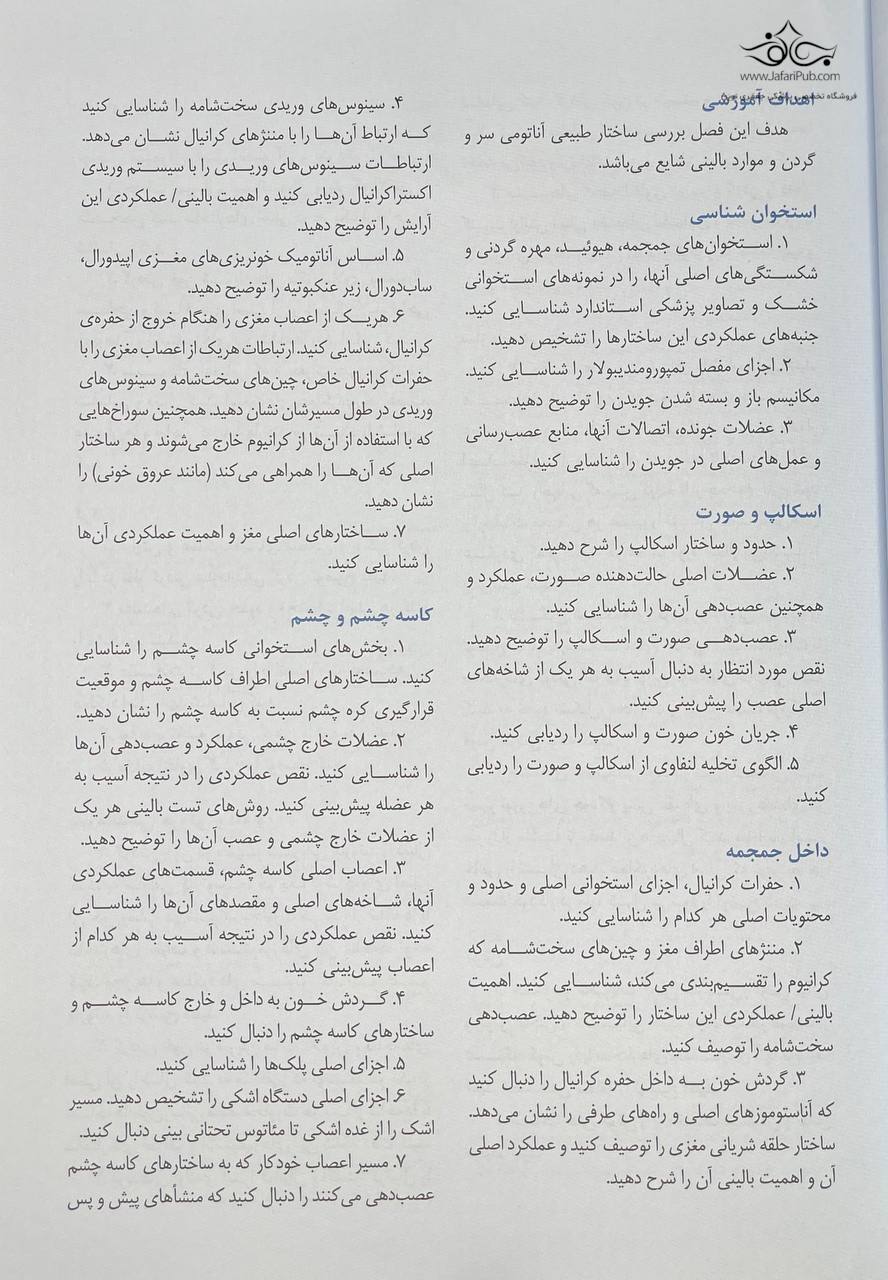 بجافی
www.JafariPub.com
فروشگاه تخصصی پزشکی جعفری نوین
اهداف آموزشی
هدف این فصل بررسی ساختار طبیعی آناتومی سر و
گردن و موارد بالینی شایع می‌باشد.
استخوان شناسی
۱. استخوان‌های جمجمه، هیوئید، مهره گردنی و
شکستگی‌های اصلی آنها، را در نمونه‌های استخوانی
خشک و تصاویر پزشکی استاندارد شناسایی کنید.
جنبه‌های عملکردی این ساختارها را تشخیص دهید.
۲. اجزای مفصل تمپورومندیبولار را شناسایی کنید.
مکانیسم باز و بسته شدن جویدن را توضیح دهید.
۳. عضلات جونده، اتصالات آنها، منابع عصب‌رسانی
و عمل‌های اصلی در جویدن را شناسایی کنید.
اسکالپ و صورت
۱. حدود و ساختار اسکالپ را شرح دهید.
۲. عضلات اصلی حالت‌دهنده صورت، عملکرد و
همچنین عصب‌دهی آن‌ها را شناسایی کنید.
۳. عصب‌دهی صورت و اسکالپ را توضیح دهید.
نقص مورد انتظار به دنبال آسیب به هر یک از شاخه‌های
اصلی عصب را پیش‌بینی کنید.
۴. جریان خون صورت و اسکالپ را ردیابی کنید.
۵. الگوی تخلیه لنفاوی از اسکالپ و صورت را ردیابی
کنید.
داخل جمجمه
۱. حفرات کرانیال، اجزای استخوانی اصلی و حدود و
محتویات اصلی هر کدام را شناسایی کنید.
۲. مننژهای اطراف مغز و چین‌های سخت‌شامه که
کرانیوم را تقسیم‌بندی می‌کند، شناسایی کنید. اهمیت
بالینی/ عملکردی این ساختار را توضیح دهید. عصب‌دهی
سخت‌شامه را توصیف کنید.
۳. گردش خون به داخل حفره کرانیال را دنبال کنید
که آناستوموزهای اصلی و راه‌های طرفی را نشان می‌دهد.
ساختار حلقه شریانی مغزی را توصیف کنید و عملکرد اصلی
آن و اهمیت بالینی آن را شرح دهید.
۴. سینوس‌های وریدی سخت‌شامه را شناسایی کنید
که ارتباط آن‌ها را با مننژهای کرانیال نشان می‌دهد.
ارتباطات سینوس‌های وریدی را با سیستم وریدی
اکستراکرانیال ردیابی کنید و اهمیت بالینی/ عملکردی این
آرایش را توضیح دهید.
۵. اساس آناتومیک خونریزی‌های مغزی اپیدورال،
ساب‌دورال، زیر عنکبوتیه را توضیح دهید.
۶. هریک از اعصاب مغزی را هنگام خروج از حفره‌ی
کرانیال، شناسایی کنید. ارتباطات هریک از اعصاب مغزی را با
حفرات کرانیال خاص، چین‌های سخت‌شامه و سینوس‌های
وریدی در طول مسیرشان نشان دهید. همچنین سوراخ‌هایی
که با استفاده از آن‌ها از کرانیوم خارج می‌شوند و هر ساختار
اصلی که آن‌ها را همراهی می‌کند (مانند عروق خونی) را
نشان دهید.
۷. ساختارهای اصلی مغز و اهمیت عملکردی آن‌ها
را شناسایی کنید.
کاسه چشم و چشم
۱. بخش‌های استخوانی کاسه چشم را شناسایی
کنید. ساختارهای اصلی اطراف کاسه چشم و موقعیت
قرارگیری کره چشم نسبت به کاسه چشم را نشان دهید.
۲. عضلات خارج چشمی، عملکرد و عصب‌دهی آن‌ها
را شناسایی کنید. نقص عملکردی را در نتیجه آسیب به
هر عضله پیش‌بینی کنید. روش‌های تست بالینی هر یک
از عضلات خارج چشمی و عصب آن‌ها را توضیح دهید.
۳. اعصاب اصلی کاسه چشم، قسمت‌های عملکردی
آنها، شاخه‌های اصلی و مقصدهای آن‌ها را شناسایی
کنید. نقص عملکردی را در نتیجه آسیب به هر کدام از
اعصاب پیش‌بینی کنید.
۴. گردش خون به داخل و خارج کاسه چشم و
ساختارهای کاسه چشم را دنبال کنید.
۵. اجزای اصلی پلک‌ها را شناسایی کنید.
۶. اجزای اصلی دستگاه اشکی را تشخیص دهید. مسیر
اشک را از غده اشکی تا مئاتوس تحتانی بینی دنبال کنید.
۷. مسیر اعصاب خودکار که به ساختارهای کاسه چشم
عصب‌دهی می‌کنند را دنبال کنید که منشأهای پیش و پس